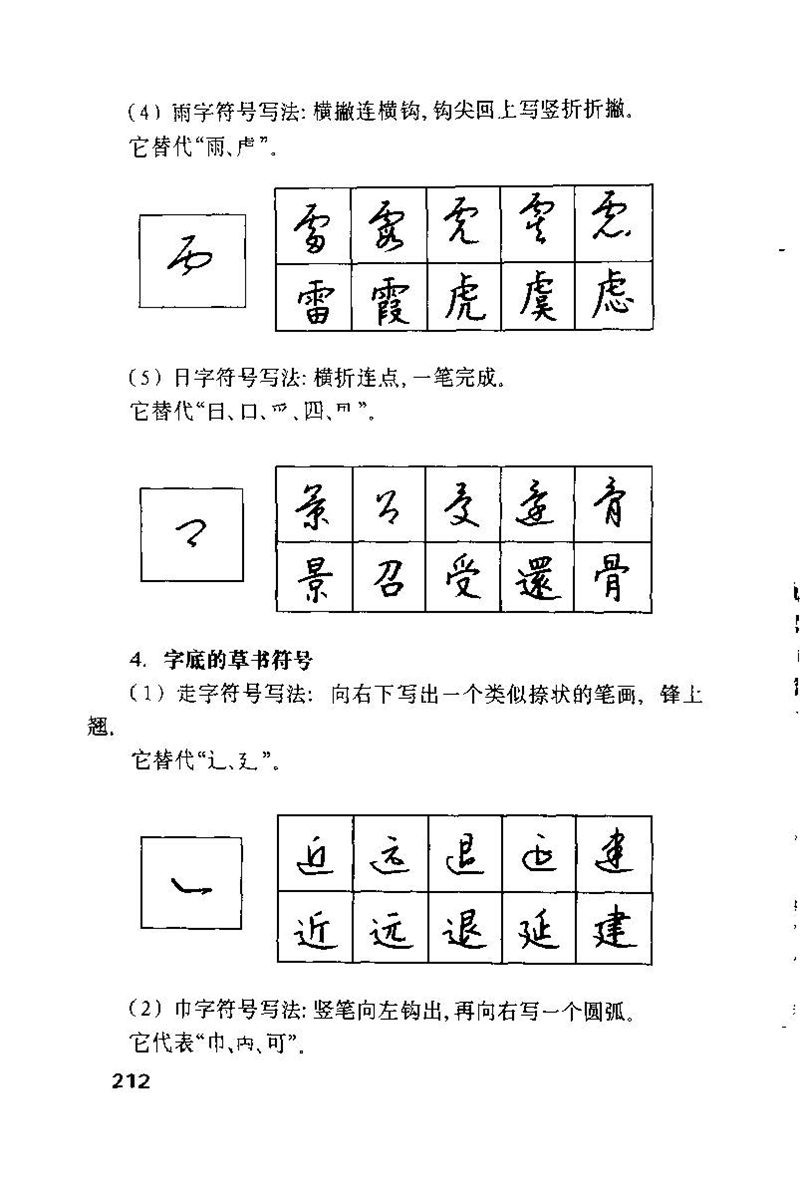 (4) 雨字符号写法: 横撇连横钩, 钩尖回上写竖折折撇。
它替代“雨、虍”。
雷 霞 虎 虞 虑
雷 霞 虎 虞 虑
(5) 日字符号写法: 横折连点, 一笔完成。
它替代“日、口、爫、四、
景 召 受 還 骨
景 召 受 還 骨
4. 字底的草书符号
(1) 走字符号写法: 向右下写出一个类似捺状的笔画, 锋上
翘。
它替代“辶、廴”。
近 远 退 延 建
近 远 退 延 建
(2) 巾字符号写法: 竖笔向左钩出, 再向右写一个圆弧。
它代表“巾、冉、可”.
212